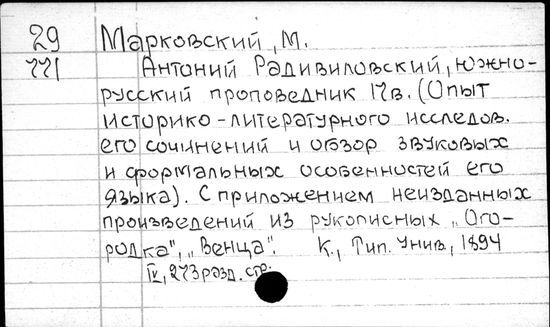 29 Марковский, М.
771 Антоний Радивиловский, южно-
русский проповедник 17в. (Опыт
историко-литературного исследов.
его сочинений и обзор звуковых
и формальных особенностей его
языка). С приложением неизданных
произведений из рукописных „Ого-
родка", „Венца". К., Тип. Унив., 1894
IV, 273 разд. стр.